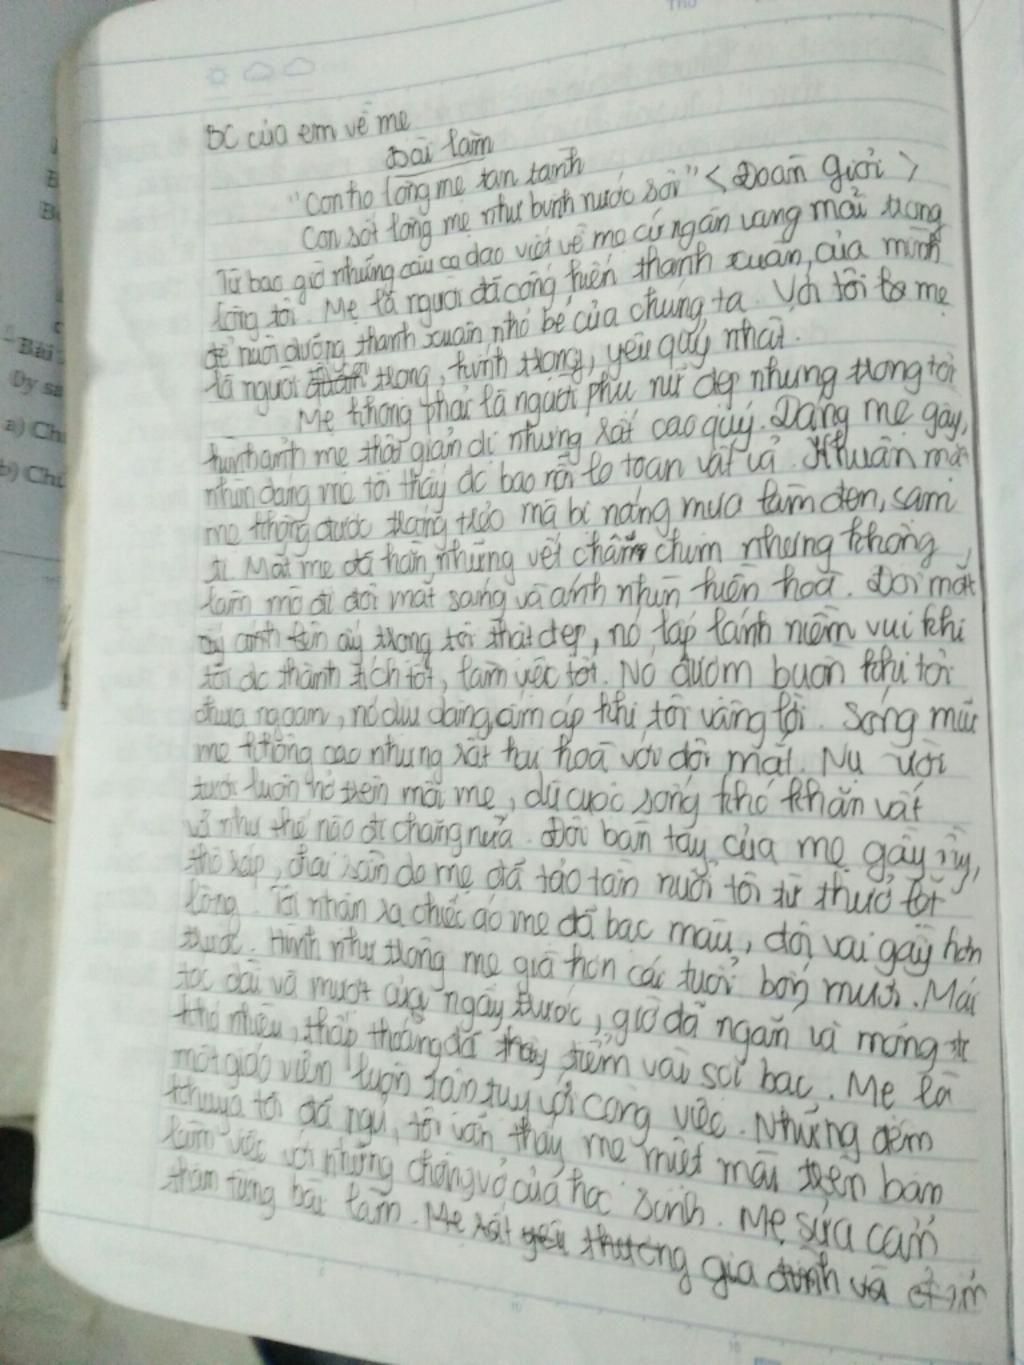 THU
BC của em về mẹ
Bài làm
"Con ho lòng mẹ tan tành
Con sốt lòng mẹ như bình nước sôi" <Đoàn Giỏi>
Từ bao giờ những câu ca dao viết về mẹ cứ ngân vang mãi trong
lòng tôi. Mẹ là người đã cống hiến thanh xuân của mình
để nuôi dưỡng thanh xuân nhỏ bé của chúng ta. Với tôi mẹ
là người trọng, kính trọng, yêu quý nhất.
Mẹ không phải là người phụ nữ đẹp nhưng trong tôi
hình ảnh mẹ thật giản dị nhưng rất cao quý. Dáng mẹ gầy,
nhìn dáng mẹ tôi thấy đc bao nỗi lo toan vất vả. Khuân mặt
mẹ không được trắng trẻo mà bị nắng mưa làm đen, sạm
đi. Mắt mẹ đã hằn những vết chân chim nhưng không
làm mờ đi đôi mắt sáng và ánh nhìn hiền hoà. Đôi mắt
ấy trong tôi thật đẹp, nó lấp lánh niềm vui khi
tôi đc thành tích tốt, làm việc tốt. Nó đượm buồn khi tôi
chưa ngoan, nó dịu dàng ấm áp khi tôi vâng lời. Sống mũi
mẹ không cao nhưng rất hài hoà với đôi mắt. Nụ cười
tươi luôn nở trên môi mẹ, dù cuộc sống khó khăn vất
vả như thế nào đi chăng nữa. Đôi bàn tay của mẹ gầy gầy,
thô ráp, chai sần do mẹ đã tảo tần nuôi tôi từ thưở lọt
lòng. Tôi nhận ra chiếc áo mẹ đã bạc màu, đôi vai gầy hơn
trước. Hình như trông mẹ già hơn cái tuổi bốn mươi. Mái
tóc dài và mượt của ngày trước, giờ đã ngắn và mỏng đi
khá nhiều, thấp thoáng đã thấy điểm vài sợi bạc. Mẹ là
một giáo viên luôn tận tụy với công việc. Những đêm
khuya tôi đã ngủ, tôi vẫn thấy mẹ miệt mài trên bàn
làm việc với những chồng vở của học sinh. Mẹ sửa cẩn
thận từng bài làm. Mẹ rất yêu thương gia đình và